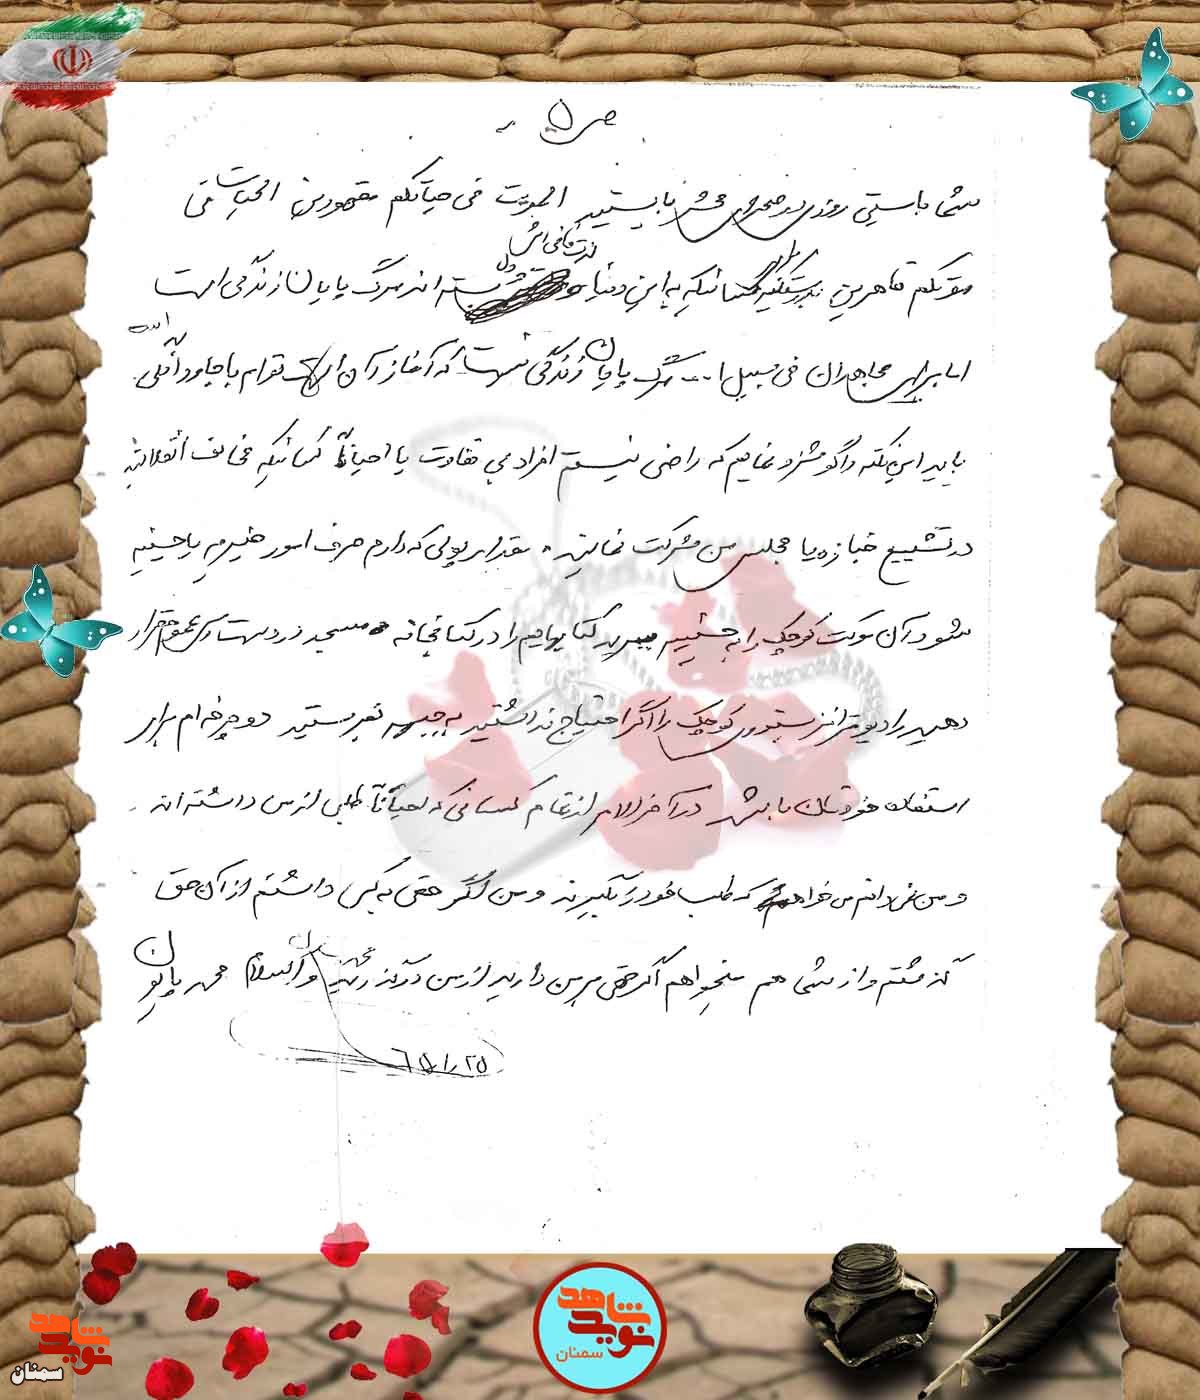 ص ۵
شما بایستی روزی در صحرای محشر بایستید الموت فی حیاتکم مقهورین الحیات فی
موتکم قاهرین بدرستیکه کسانیکه به این دنیا دل بسته اند مرگ پایان زندگی است
اما برای مجاهدان فی سبیل ا... مرگ پایان زندگی نیست که آغاز آن است توام با
باید این نکته را گوشزد نمایم که راضی نیستم افراد بی تفاوت یا احیاناً کسانیکه مخالف انقلابند
در تشییع جنازه یا مجلس من شرکت نمایند. مقدار پولی که دارم صرف امور خیریه یا حسینیه
شود آن موکت کوچک را به حسینیه ببرید کتابهایم را در کتابخانه مسجد قرار
دهید رادیو ترانزیستوری کوچک را اگر احتیاج نداشتید به جبهه بفرستید دوچرخه ام برای
استفاده خودتان باشد در آخر الامر از تمام کسانی که احیاناً طلبی از من داشته اند
و من نمی دانم می خواهم که طلب خود را بگیرند و من اگر حقی به کسی داشتم از آن حق
گذشتم و از شما هم میخواهم اگر حقی بر من دارید از من درگذرید والسلام
۶۵/۱/۲۵
شاهد
نوید
سمنان
شاهد
نوید
سمنان